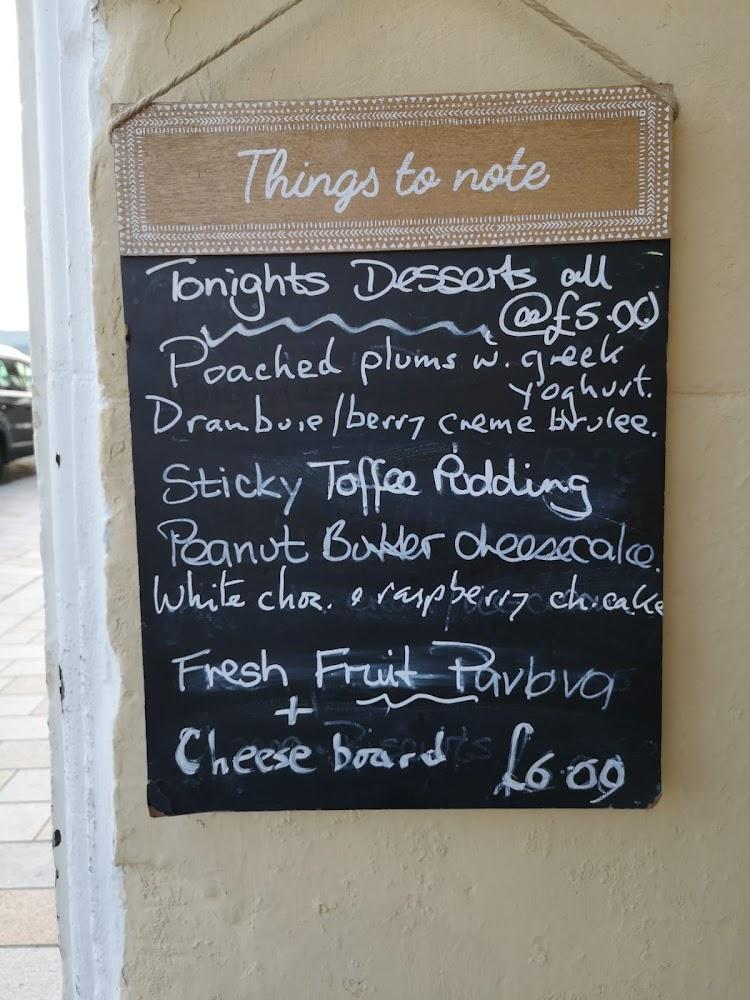 Things to note
Tonights Desserts all
@£5.00
Poached plums w. greek
yoghurt.
Drambuie/berry creme brulee.
Sticky Toffee Pudding
Peanut Butter cheesecake.
White choc. & raspberry ch.cake
Fresh Fruit Pavlova
+
Cheese board £6.00